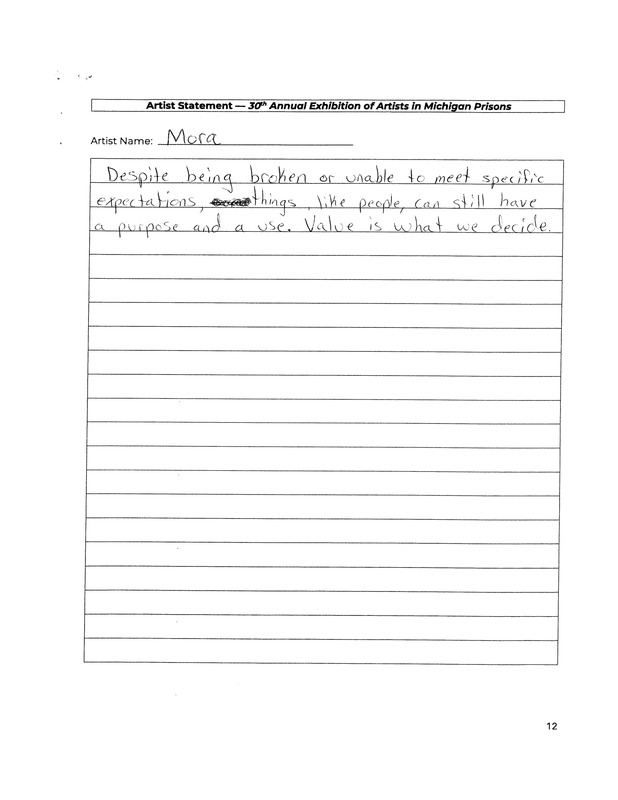 Artist Statement — 30th Annual Exhibition of Artists in Michigan Prisons
Artist Name: Mora
Despite being broken or unable to meet specific
expectations, things, like people, can still have
a purpose and a use. Value is what we decide.
12